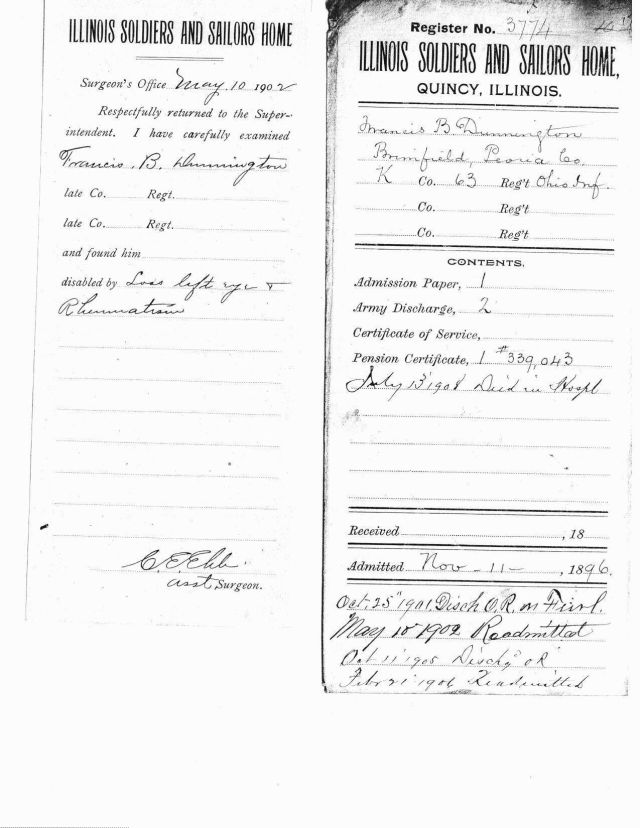 ILLINOIS SOLDIERS AND SAILORS HOME
Surgeon's Office May 10 1902
Respectfully returned to the Super-
intendent. I have carefully examined
Francis. B. Dunnington
late Co. Regt.
late Co. Regt.
and found him
disabled by Loss left eye &
Rheumatism
Asst Surgeon.
Register No. 3774
ILLINOIS SOLDIERS AND SAILORS HOME,
QUINCY, ILLINOIS.
Francis B Dunnington
Brimfield, Peoria Co.
K Co. 63 Reg't Ohio Inf.
Co. Reg't
Co. Reg't
CONTENTS.
Admission Paper, 1
Army Discharge, 2
Certificate of Service,
Pension Certificate, 1 #339,043
July 13" 1908 Died in Hospl
Received , 18
Admitted Nov - 11 - , 1896.
Oct. 25" 1901, Disch O.R. on Furl.
May 10" 1902 Readmitted
Oct 11" 1905 Dischg O R
Feby 21" 1906 Readmitted